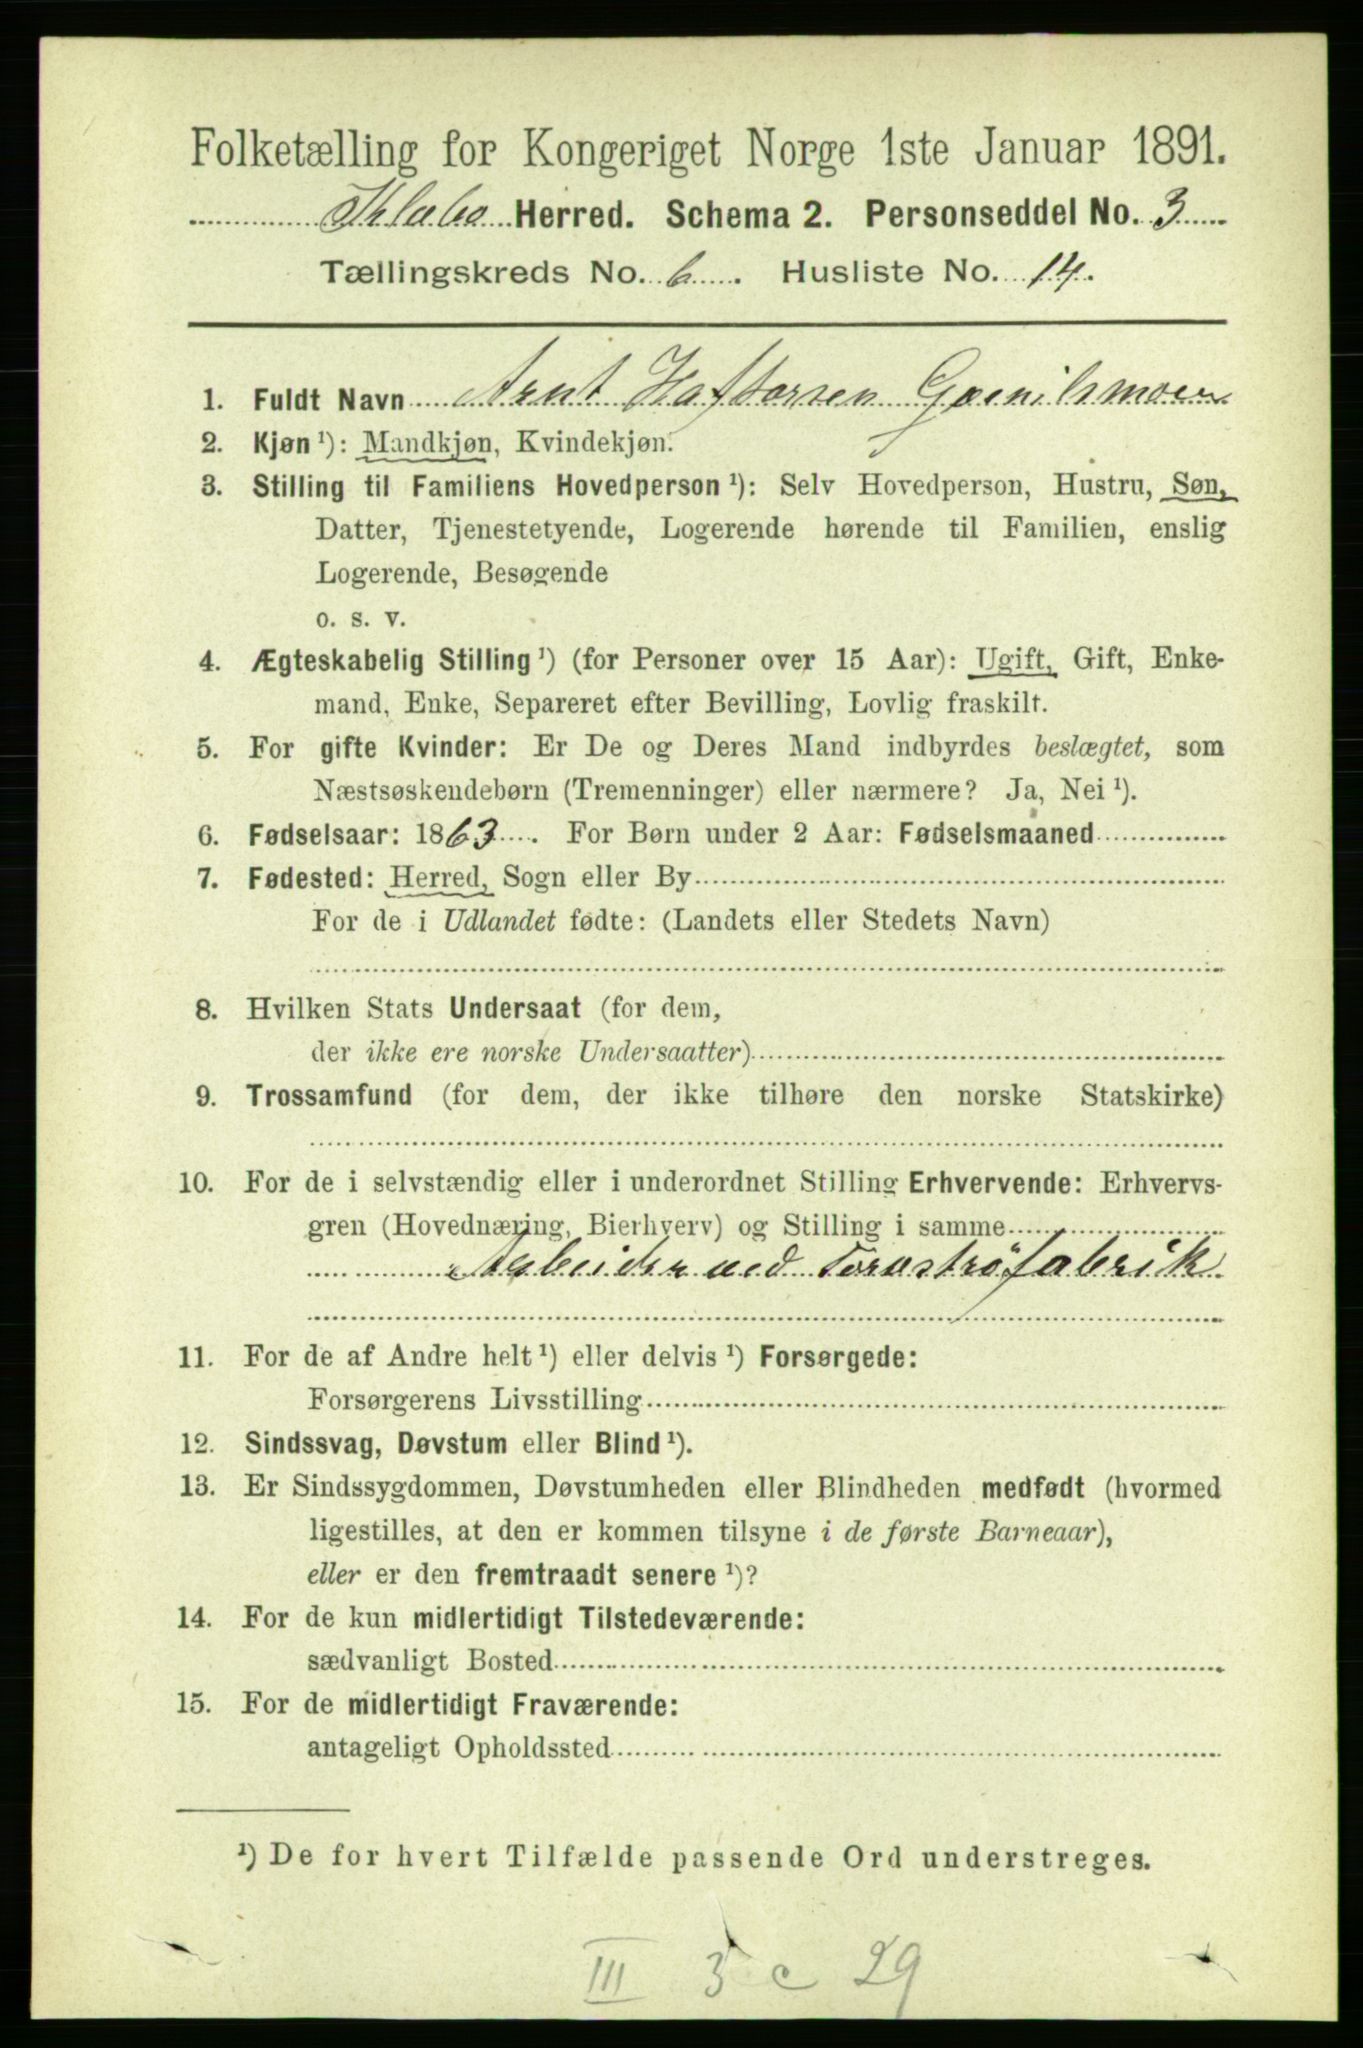 Folketælling for Kongeriget Norge 1ste Januar 1891.
Klæbo Herred. Schema 2. Personseddel No. 3
Tællingskreds No. 6. Husliste No. 14.
1. Fuldt Navn Arnt Haftorsen
2. Kjøn ¹): Mandkjøn, Kvindekjøn.
3. Stilling til Familiens Hovedperson ¹): Selv Hovedperson, Hustru, Søn,
Datter, Tjenestetyende, Logerende hørende til Familien, enslig
Logerende, Besøgende
o. s. v.
4. Ægteskabelig Stilling ¹) (for Personer over 15 Aar): Ugift, Gift, Enke-
mand, Enke, Separeret efter Bevilling, Lovlig fraskilt.
5. For gifte Kvinder: Er De og Deres Mand indbyrdes beslægtet, som
Næstsøskendebørn (Tremenninger) eller nærmere? Ja, Nei ¹).
6. Fødselsaar: 1863. For Børn under 2 Aar: Fødselsmaaned
7. Fødested: Herred, Sogn eller By
For de i Udlandet fødte: (Landets eller Stedets Navn)
8. Hvilken Stats Undersaat (for dem,
der ikke ere norske Undersaatter)
9. Trossamfund (for dem, der ikke tilhøre den norske Statskirke)
10. For de i selvstændig eller i underordnet Stilling Erhvervende: Erhvervs-
gren (Hovednæring, Bierhverv) og Stilling i samme
Arbeider ved Torvströfabrik
11. For de af Andre helt ¹) eller delvis ¹) Forsørgede:
Forsørgerens Livsstilling
12. Sindssvag, Døvstum eller Blind ¹).
13. Er Sindssygdommen, Døvstumheden eller Blindheden medfødt (hvormed
ligestilles, at den er kommen tilsyne i de første Barneaar),
eller er den fremtraadt senere ¹)?
14. For de kun midlertidigt Tilstedeværende:
sædvanligt Bosted
15. For de midlertidigt Fraværende:
antageligt Opholdssted
¹) De for hvert Tilfælde passende Ord understreges.
III 3 c 29